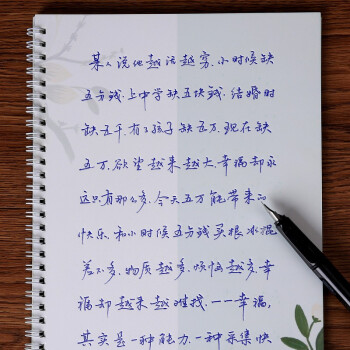 某人说他越活越穷.小时候缺
五分钱.上中学缺五块钱.结婚时
缺五千.有了孩子缺五万.现在缺
五万.欲望越来越大.幸福却永
这只有那么多.今天五万能带来的
快乐.和小时候五分钱买根冰棍
差不多.物质越多.烦恼越多.幸
福却越来越难找.一一幸福,
其实是一种能力.一种采集快